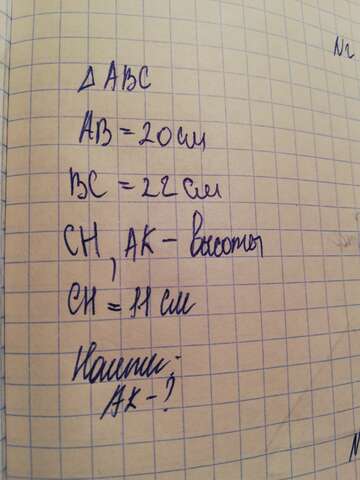 №
△ ABC
AB = 20 см
BC = 22 см
CH, AK – высоты
CH = 11 см
Найти:
AK – ?